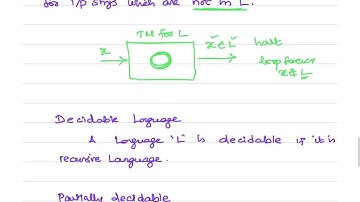 for i/p strings which are not in L.
TM for L
x
x ∈ L halt
loop forever
x ∉ L
Decidable Language
A Language 'L' is decidable if it is
recursive Language.
Partially decidable